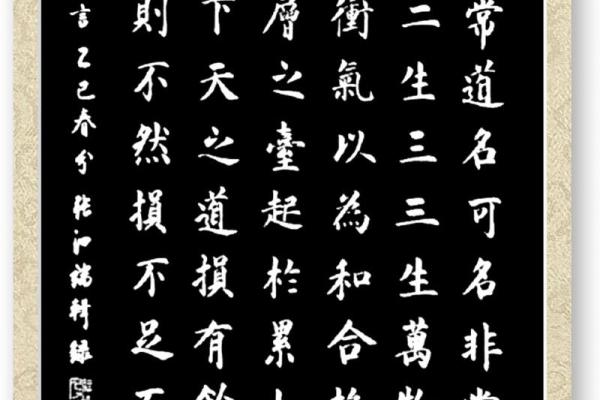 常道名可名非常
二生三三生萬物
衝氣以為和合抱
層之臺起於累土
下天之道損有餘
則不然損不足不
言乙巳春分張江瑞軒錄